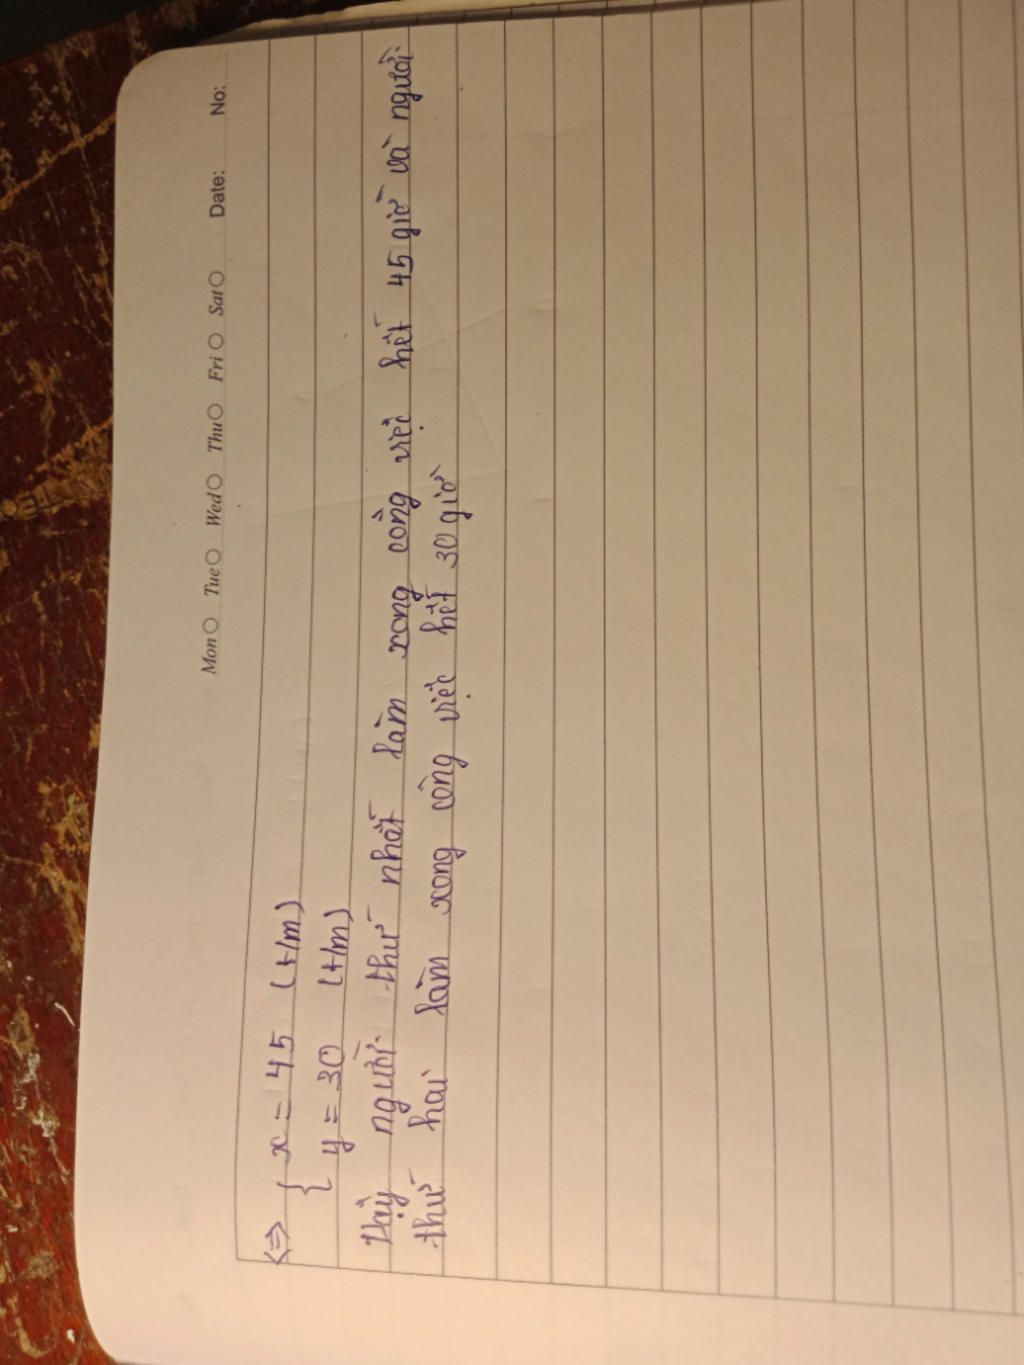 Mon Tue Wed Thu Fri Sat Date: No:
<=> { x = 45 (t/m)
{ y = 30 (t/m)
Vậy người thứ nhất làm xong công việc hết 45 giờ và người
thứ hai làm xong công việc hết 30 giờ